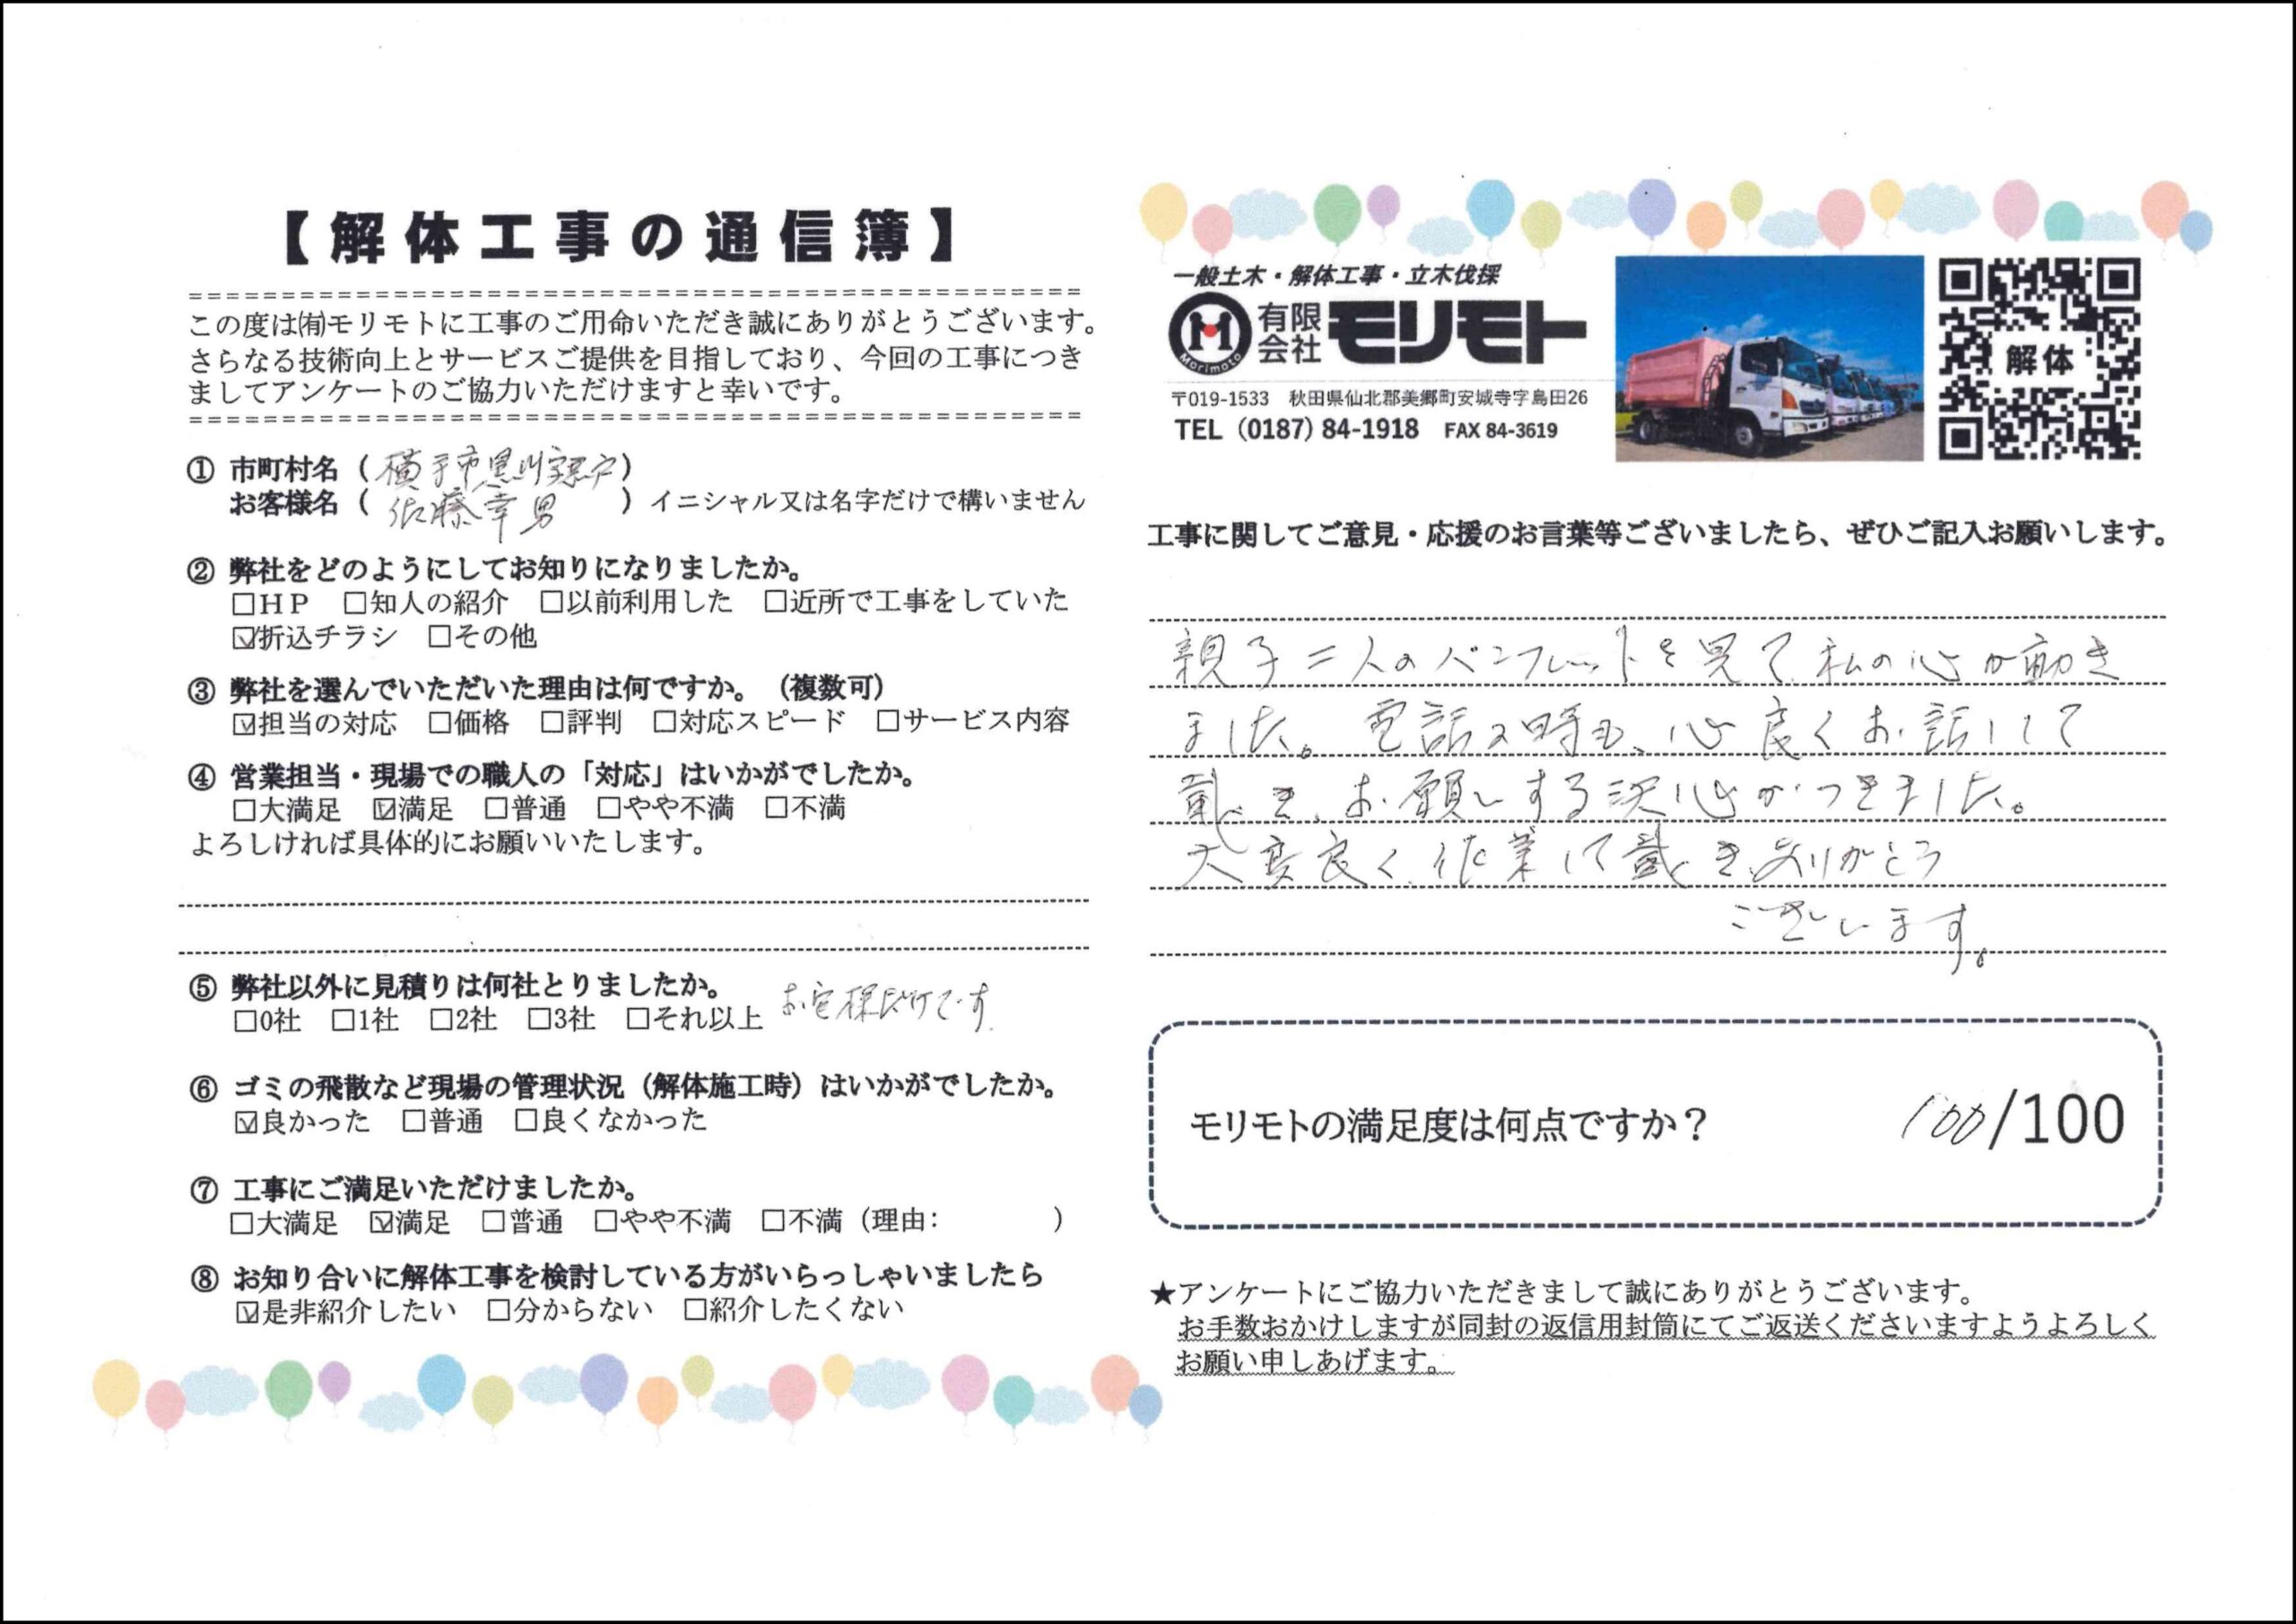 【解体工事の通信簿】
この度は㈲モリモトに工事のご用命いただき誠にありがとうございます。
さらなる技術向上とサービスご提供を目指しており、今回の工事につき
ましてアンケートのご協力いただけますと幸いです。
① 市町村名（横手市黒川字）
お客様名（佐藤幸男）イニシャル又は名字だけで構いません
② 弊社をどのようにしてお知りになりましたか。
□ＨＰ □知人の紹介 □以前利用した □近所で工事をしていた
☑折込チラシ □その他
③ 弊社を選んでいただいた理由は何ですか。（複数可）
☑担当の対応 □価格 □評判 □対応スピード □サービス内容
④ 営業担当・現場での職人の「対応」はいかがでしたか。
□大満足 ☑満足 □普通 □やや不満 □不満
よろしければ具体的にお願いいたします。
⑤ 弊社以外に見積りは何社とりましたか。
□0社 □1社 □2社 □3社 □それ以上 お宅様だけです
⑥ ゴミの飛散など現場の管理状況（解体施工時）はいかがでしたか。
☑良かった □普通 □良くなかった
⑦ 工事にご満足いただけましたか。
□大満足 ☑満足 □普通 □やや不満 □不満（理由: ）
⑧ お知り合いに解体工事を検討している方がいらっしゃいましたら
☑是非紹介したい □分からない □紹介したくない
一般土木・解体工事・立木伐採
Morimoto
有限会社モリモト
〒019-1533 秋田県仙北郡美郷町安城寺字島田26
TEL（0187）84-1918 FAX 84-3619
解体
工事に関してご意見・応援のお言葉等ございましたら、ぜひご記入お願いします。
親子二人のパンフレットを見て、私の心が動き
ました。電話の時も、心良くお話しして
戴き、お願いする決心がつきました。
大変良く作業して戴き、ありがとう
ございます。
モリモトの満足度は何点ですか？ 100/100
★アンケートにご協力いただきまして誠にありがとうございます。
お手数おかけしますが同封の返信用封筒にてご返送くださいますようよろしく
お願い申しあげます。